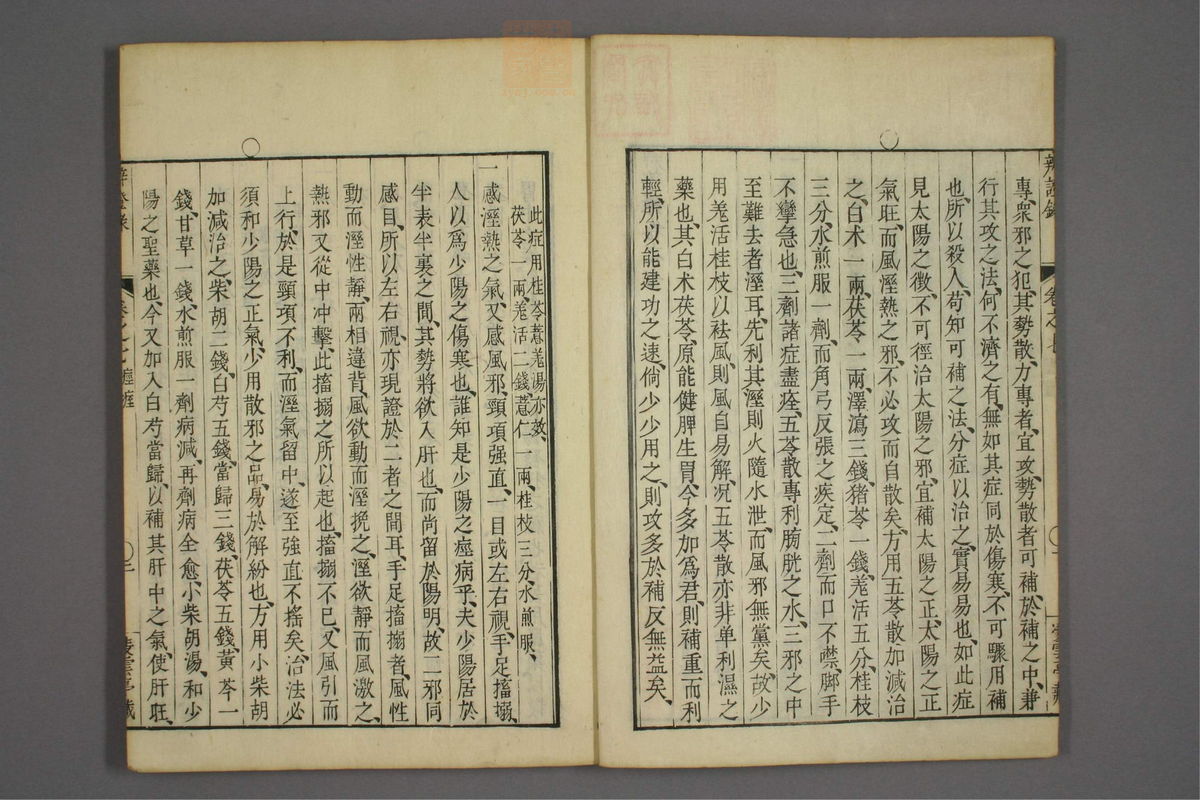 專、衆邪之犯、其勢散、方專者、宜攻、勢散者可補、於補之中、兼
行其攻之法、何不濟之有、無如其症同於傷寒、不可驟用補
也、所以殺人、苟知可補之法、分症以治之、實易易也、如此症
見太陽之徵、不可徑治太陽之邪、宜補太陽之正、太陽之正
氣旺、而風溼熱之邪、不必攻而自散矣、方用五苓散加減治
之、白术一兩、茯苓一兩、澤瀉三錢、猪苓一錢、羗活五分、桂枝
三分、水煎服、一劑、而角弓反張之疾定、二劑而口不噤、脚手
不攣急也、三劑諸症盡痊、五苓散專利膀胱之水、三邪之中
至難去者、溼耳、先利其溼、則火隨水泄、而風邪無黨矣、故少
用羗活桂枝以袪風、則風自易解、况五苓散亦非单利濕之
藥也、其白术茯苓、原能健脾生胃、今多加爲君、則補重而利
輕、所以能建功之速、倘少少用之、則攻多於補、反無益矣、
此症用桂苓薏羗湯亦效、
茯苓一兩羗活二錢薏仁一兩、桂枝三分、水煎服、
一感溼熱之氣、又感風邪、頸項强直、一目或左右視、手足搐搦、
人以爲少陽之傷寒也、誰知是少陽之痙病乎、夫少陽居於
半表半裏之間、其勢將欲入肝也、而尚留於陽明、故二邪同
感目、所以左右視、亦現證於二者之間耳、手足搐搦者、風性
動而溼性靜、兩相違背、風欲動而溼挽之、溼欲靜而風激之、
熱邪又從中冲擊、此搐搦之所以起也、搐搦不已、又風引而
上行、於是頸項不利、而溼氣留中、遂至強直不搖矣、治法必
須和少陽之正氣、少用散邪之品、易於解紛也、方用小柴胡
加減治之、柴胡二錢、白芍五錢、當歸三錢、茯苓五錢、黃芩一
錢、甘草一錢、水煎服一劑病減、再劑病全愈、小柴胡湯、和少
陽之聖藥也、今又加入白芍當歸、以補其肝中之氣、使肝旺、